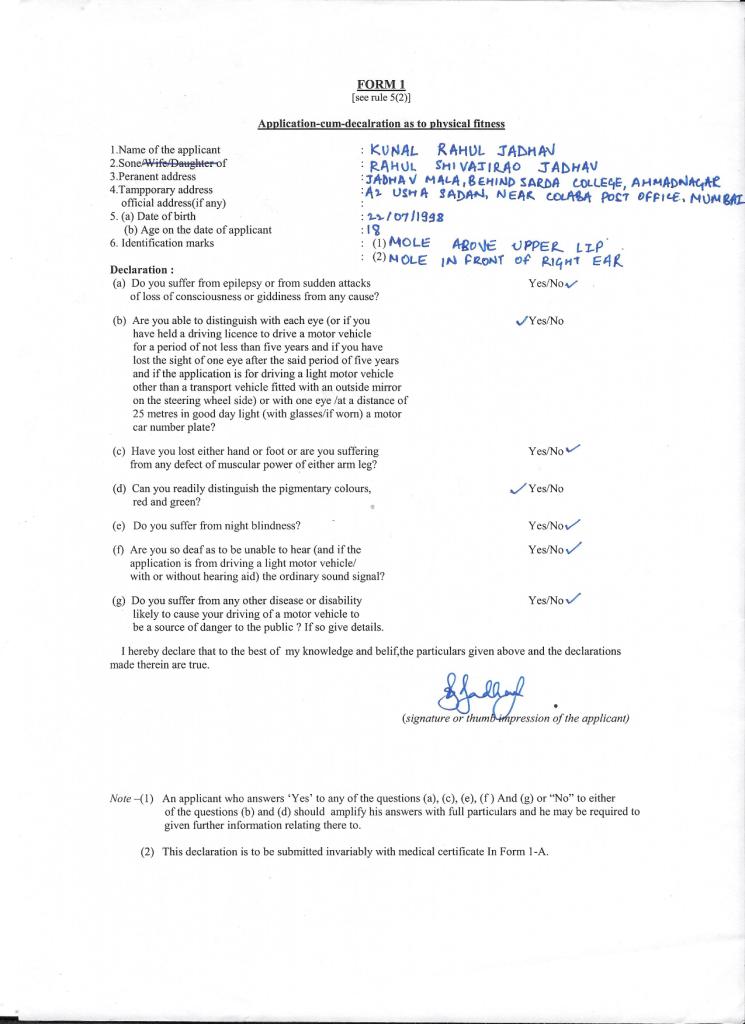 FORM 1
[see rule 5(2)]
Application-cum-decalration as to physical fitness
1.Name of the applicant : KUNAL RAHUL JADHAV
2.Sone/Wife/Daughter of : RAHUL SHIVAJIRAO JADHAV
3.Peranent address : JADHAV MALA, BEHIND SARDA COLLEGE, AHMADNAGAR
4.Tampporary address : A2 USHA SADAN, NEAR COLABA POST OFFICE, MUMBAI
official address(if any) :
5. (a) Date of birth : 22/07/1998
(b) Age on the date of applicant : 18
6. Identification marks : (1) MOLE ABOVE UPPER LIP
: (2) MOLE IN FRONT OF RIGHT EAR
Declaration :
(a) Do you suffer from epilepsy or from sudden attacks Yes/No✓
of loss of consciousness or giddiness from any cause?
(b) Are you able to distinguish with each eye (or if you ✓Yes/No
have held a driving licence to drive a motor vehicle
for a period of not less than five years and if you have
lost the sight of one eye after the said period of five years
and if the application is for driving a light motor vehicle
other than a transport vehicle fitted with an outside mirror
on the steering wheel side) or with one eye /at a distance of
25 metres in good day light (with glasses/if worn) a motor
car number plate?
(c) Have you lost either hand or foot or are you suffering Yes/No✓
from any defect of muscular power of either arm leg?
(d) Can you readily distinguish the pigmentary colours, ✓Yes/No
red and green?
(e) Do you suffer from night blindness? Yes/No✓
(f) Are you so deaf as to be unable to hear (and if the Yes/No✓
application is from driving a light motor vehicle/
with or without hearing aid) the ordinary sound signal?
(g) Do you suffer from any other disease or disability Yes/No✓
likely to cause your driving of a motor vehicle to
be a source of danger to the public ? If so give details.
I hereby declare that to the best of my knowledge and belif,the particulars given above and the declarations
made therein are true.
(signature or thumb-impression of the applicant)
Note –(1) An applicant who answers ‘Yes’ to any of the questions (a), (c), (e), (f ) And (g) or “No” to either
of the questions (b) and (d) should amplify his answers with full particulars and he may be required to
given further information relating there to.
(2) This declaration is to be submitted invariably with medical certificate In Form 1-A.